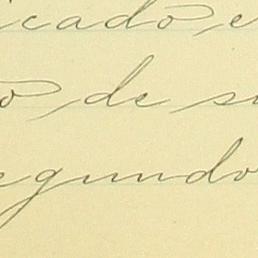 icado e
o, de su
egundo